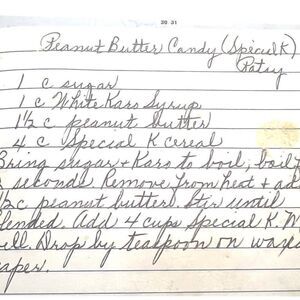 30 31
Peanut Butter Candy (Special K)
Patsy
1 c sugar
1 c White Karo Syrup
1 1/2 c peanut butter
4 c Special K cereal
Bring sugar + Karo to boil, boil
seconds. Remove from heat + ad
1/2 c peanut butter. Stir until
blended. Add 4 cups Special K. M
ell. Drop by teaspoon on waxed
paper.